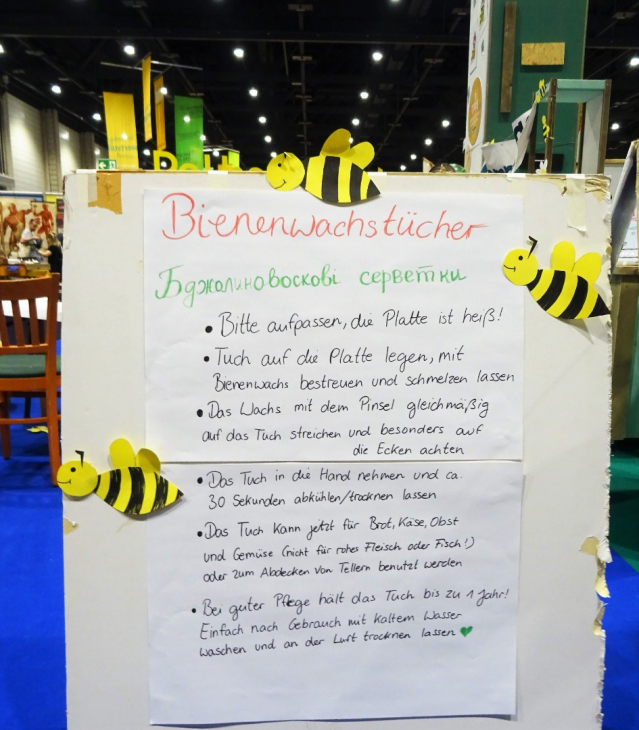 Bienenwachstücher
Бджолиновоскові серветки
• Bitte aufpassen, die Platte ist heiß!
• Tuch auf die Platte legen, mit
Bienenwachs bestreuen und schmelzen lassen
• Das Wachs mit dem Pinsel gleichmäßig
auf das Tuch streichen und besonders auf
die Ecken achten
• Das Tuch in die Hand nehmen und ca.
30 Sekunden abkühlen/trocknen lassen
• Das Tuch kann jetzt für Brot, Käse, Obst
und Gemüse (nicht für rohes Fleisch oder Fisch!)
oder zum Abdecken von Tellern benutzt werden
• Bei guter Pflege hält das Tuch bis zu 1 Jahr!
Einfach nach Gebrauch mit kaltem Wasser
waschen und an der Luft trocknen lassen ♥